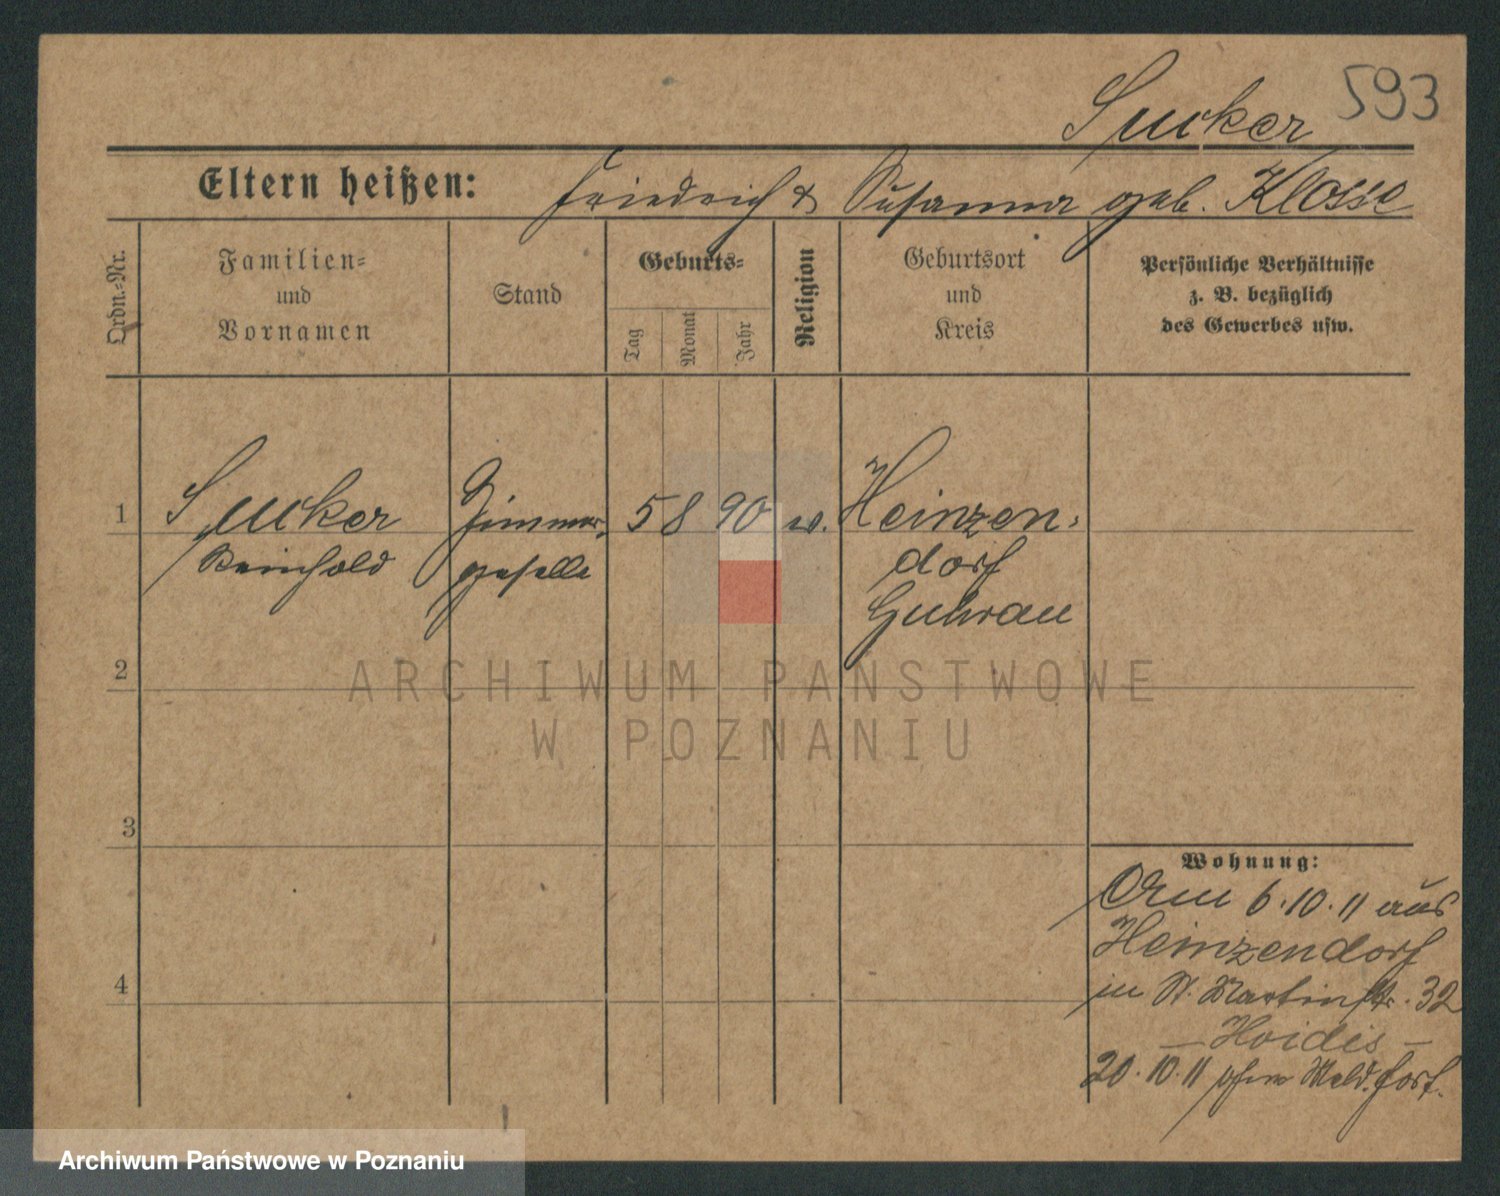 Sucker 593
Eltern heißen: Friedrich & Susanna geb. Klosse
Ordn.-Nr.
Familien-
und
Vornamen
Stand
Geburts-
Tag
Monat
Jahr
Religion
Geburtsort
und
Kreis
Persönliche Verhältnisse
z. B. bezüglich
des Gewerbes usw.
1 Sucker Zimmer- 5 8 90 ev. Heinzen-
Reinhold geselle dorf
Guhrau
2
ARCHIWUM PAŃSTWOWE
W POZNANIU
3
Wohnung:
6.10.11 aus
Heinzendorf
in St. Martinstr. 32
— Hoidis —
4
20.10.11 ohne Meld. fort.
Archiwum Państwowe w Poznaniu